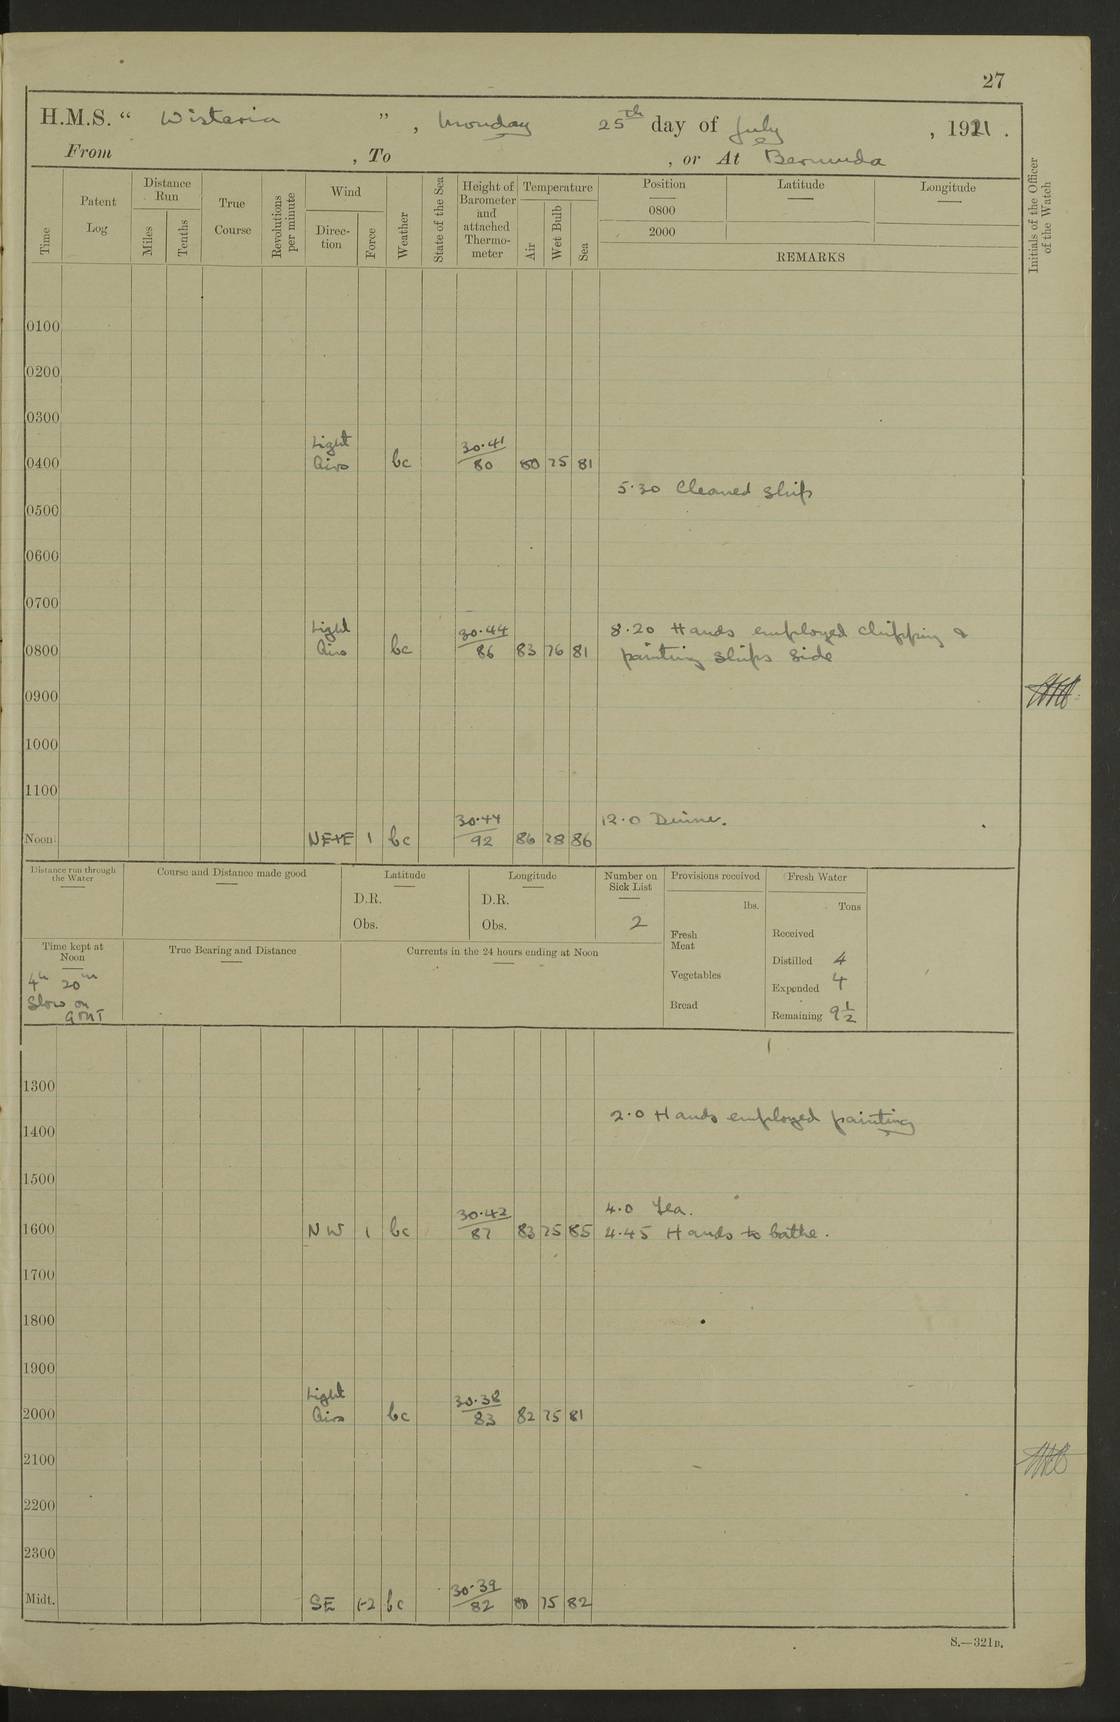 27
H.M.S. “ Wistaria ” , Monday 25th day of July , 1921 .
From , To , or At Bermuda
Time
Patent Log
Distance Run
Miles
Tenths
True Course
Revolutions per minute
Wind
Direc-tion
Force
Weather
State of the Sea
Height of Barometer and attached Thermo-meter
Temperature
Air
Wet Bulb
Sea
Position Latitude Longitude
0800
2000
REMARKS
Initials of the Officer of the Watch
0100
0200
0300
Light 30.41
0400 Airs bc 80 80 75 81
5.30 Cleaned ship
0500
0600
0700
Light 30.44 8.20 Hands employed chipping &
0800 Airs bc 86 83 76 81 painting ships side
0900
1000
1100
30.44 12.0 Dinner.
Noon 1 bc 92 86 78 86
Distance run through the Water
Course and Distance made good
Latitude
D.R.
Obs.
Longitude
D.R.
Obs.
Number on Sick List
2
Provisions received
lbs.
Fresh Meat
Vegetables
Bread
Fresh Water
Tons
Received
Distilled 4
Expended 4
Remaining 9½
Time kept at Noon
4h 20m
Slow on
GMT
True Bearing and Distance
Currents in the 24 hours ending at Noon
1300
2.0 Hands employed painting
1400
1500
30.42 4.0 Tea.
1600 NW 1 bc 87 83 75 85 4.45 Hands to bathe.
1700
1800
1900
Light 30.38
2000 Airs bc 83 82 75 81
2100
2200
2300
30.39
Midt. SE 1-2 bc 82 80 75 82
S.—321B.